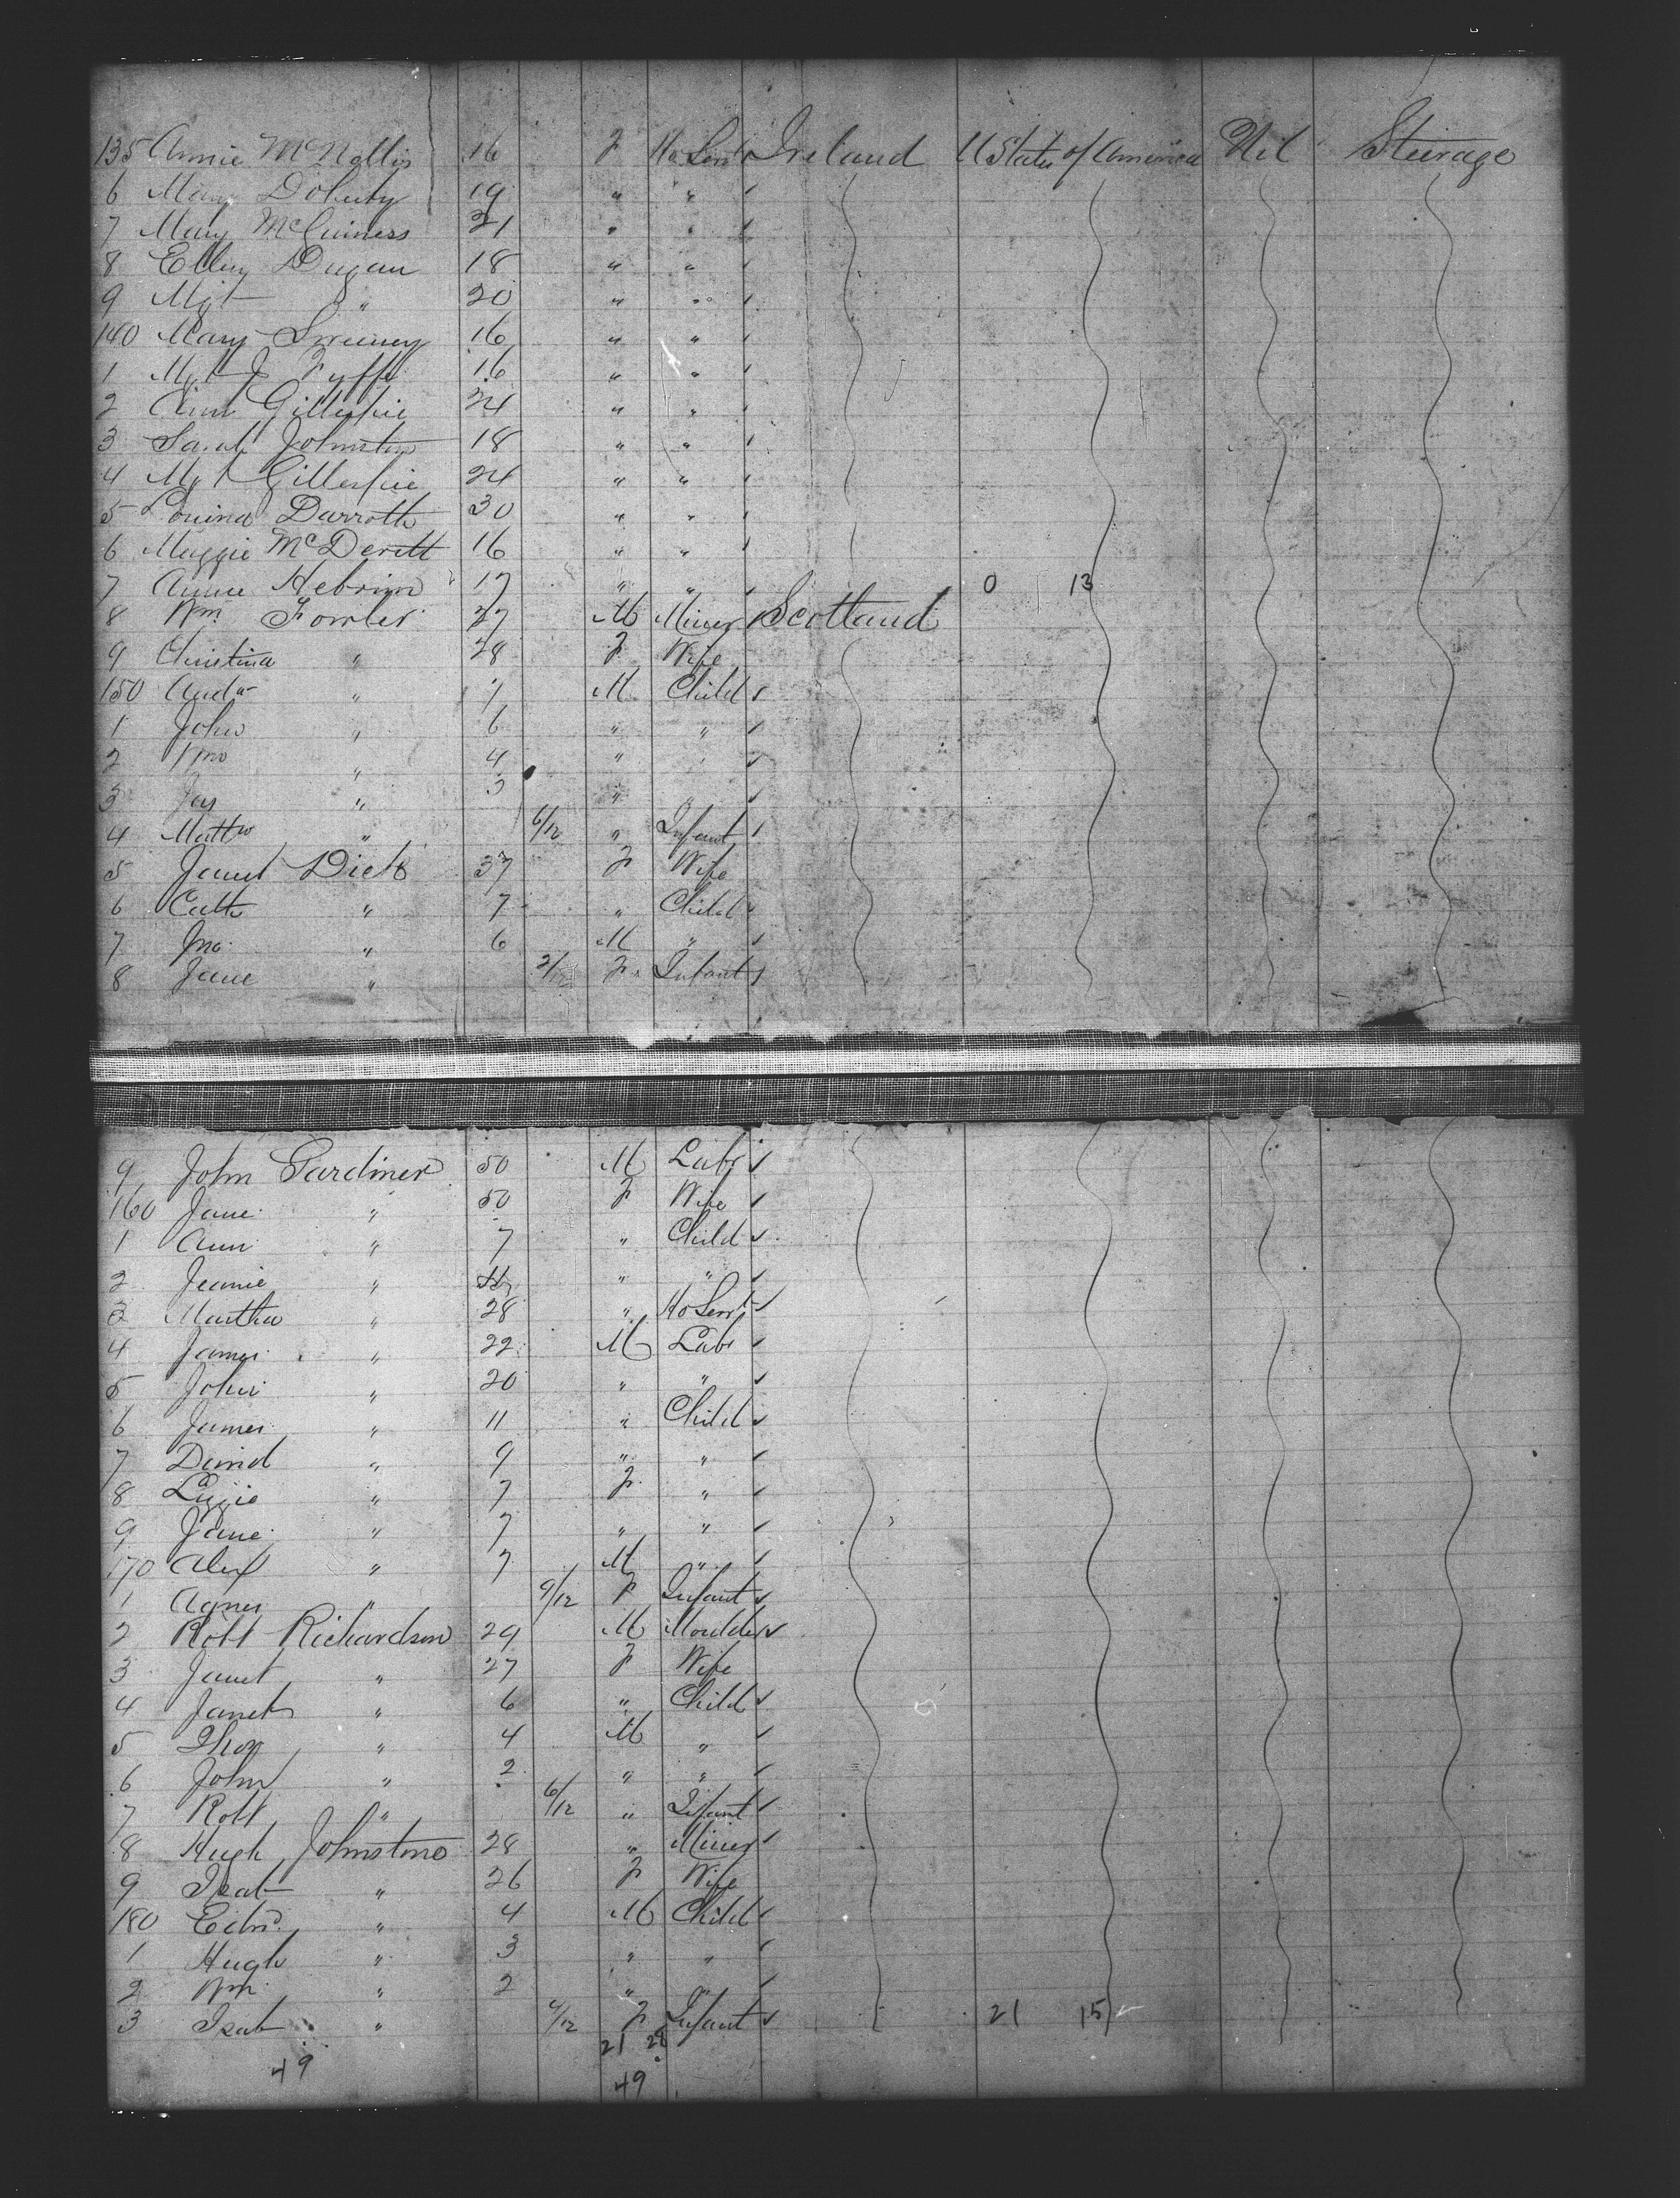 135 Annie McNellis 16 F Ho Servt Ireland U States of America Nil Steerage
6 Mary Doherty 19 " "
7 Mary McGuiness 21 " "
8 Ellen Dugan 18 " "
9 Mgt " 20 " "
140 Mary Sweeney 16 " "
1 Mgt J Fyffe 16 " "
2 Ann Gillespie 24 " "
3 Sarah Johnston 18 " "
4 Mgt Gillespie 24 " "
5 Darroth 30 " "
6 Maggie McDevitt 16 " "
7 Annie 17 " " 0 13
8 Wm Fowler 27 M Miner Scotland
9 Christina " 28 F Wife
150 Andw " 7 M Child
1 John " 6 " "
2 Wm " 4 " "
3 Jas " 3 " "
4 Mattw " 6/12 " Infant
5 Janet Dick 37 F Wife
6 Cath " 7 " Child
7 Jno " 6 M "
8 Jane " 2/12 F Infant
9 John Gardiner 50 M Labr
160 Jane " 50 F Wife
1 Ann " 7 " Child
2 Jeanie " " "
3 Martha " 28 " Ho Servt
4 James " 22 M Labr
5 John " 20 " "
6 James " 11 " Child
7 David " 9 " "
8 Lizzie " 7 F "
9 Jane " 7 " "
170 Alex " 7 M "
1 Agnes " 9/12 F Infant
2 Robt Richardson 29 M Moulder
3 Janet " 27 F Wife
4 Janet " 6 " Child
5 Thos " 4 M "
6 John " 2 " "
7 Robt " 6/12 " Infant
8 Hugh Johnstone 28 " Miner
9 Isab " 26 F Wife
180 Edwd " 4 M Child
1 Hugh " 3 " "
2 Wm " 2 " "
3 Isab " /12 F Infant 21 15
21 28
49 49